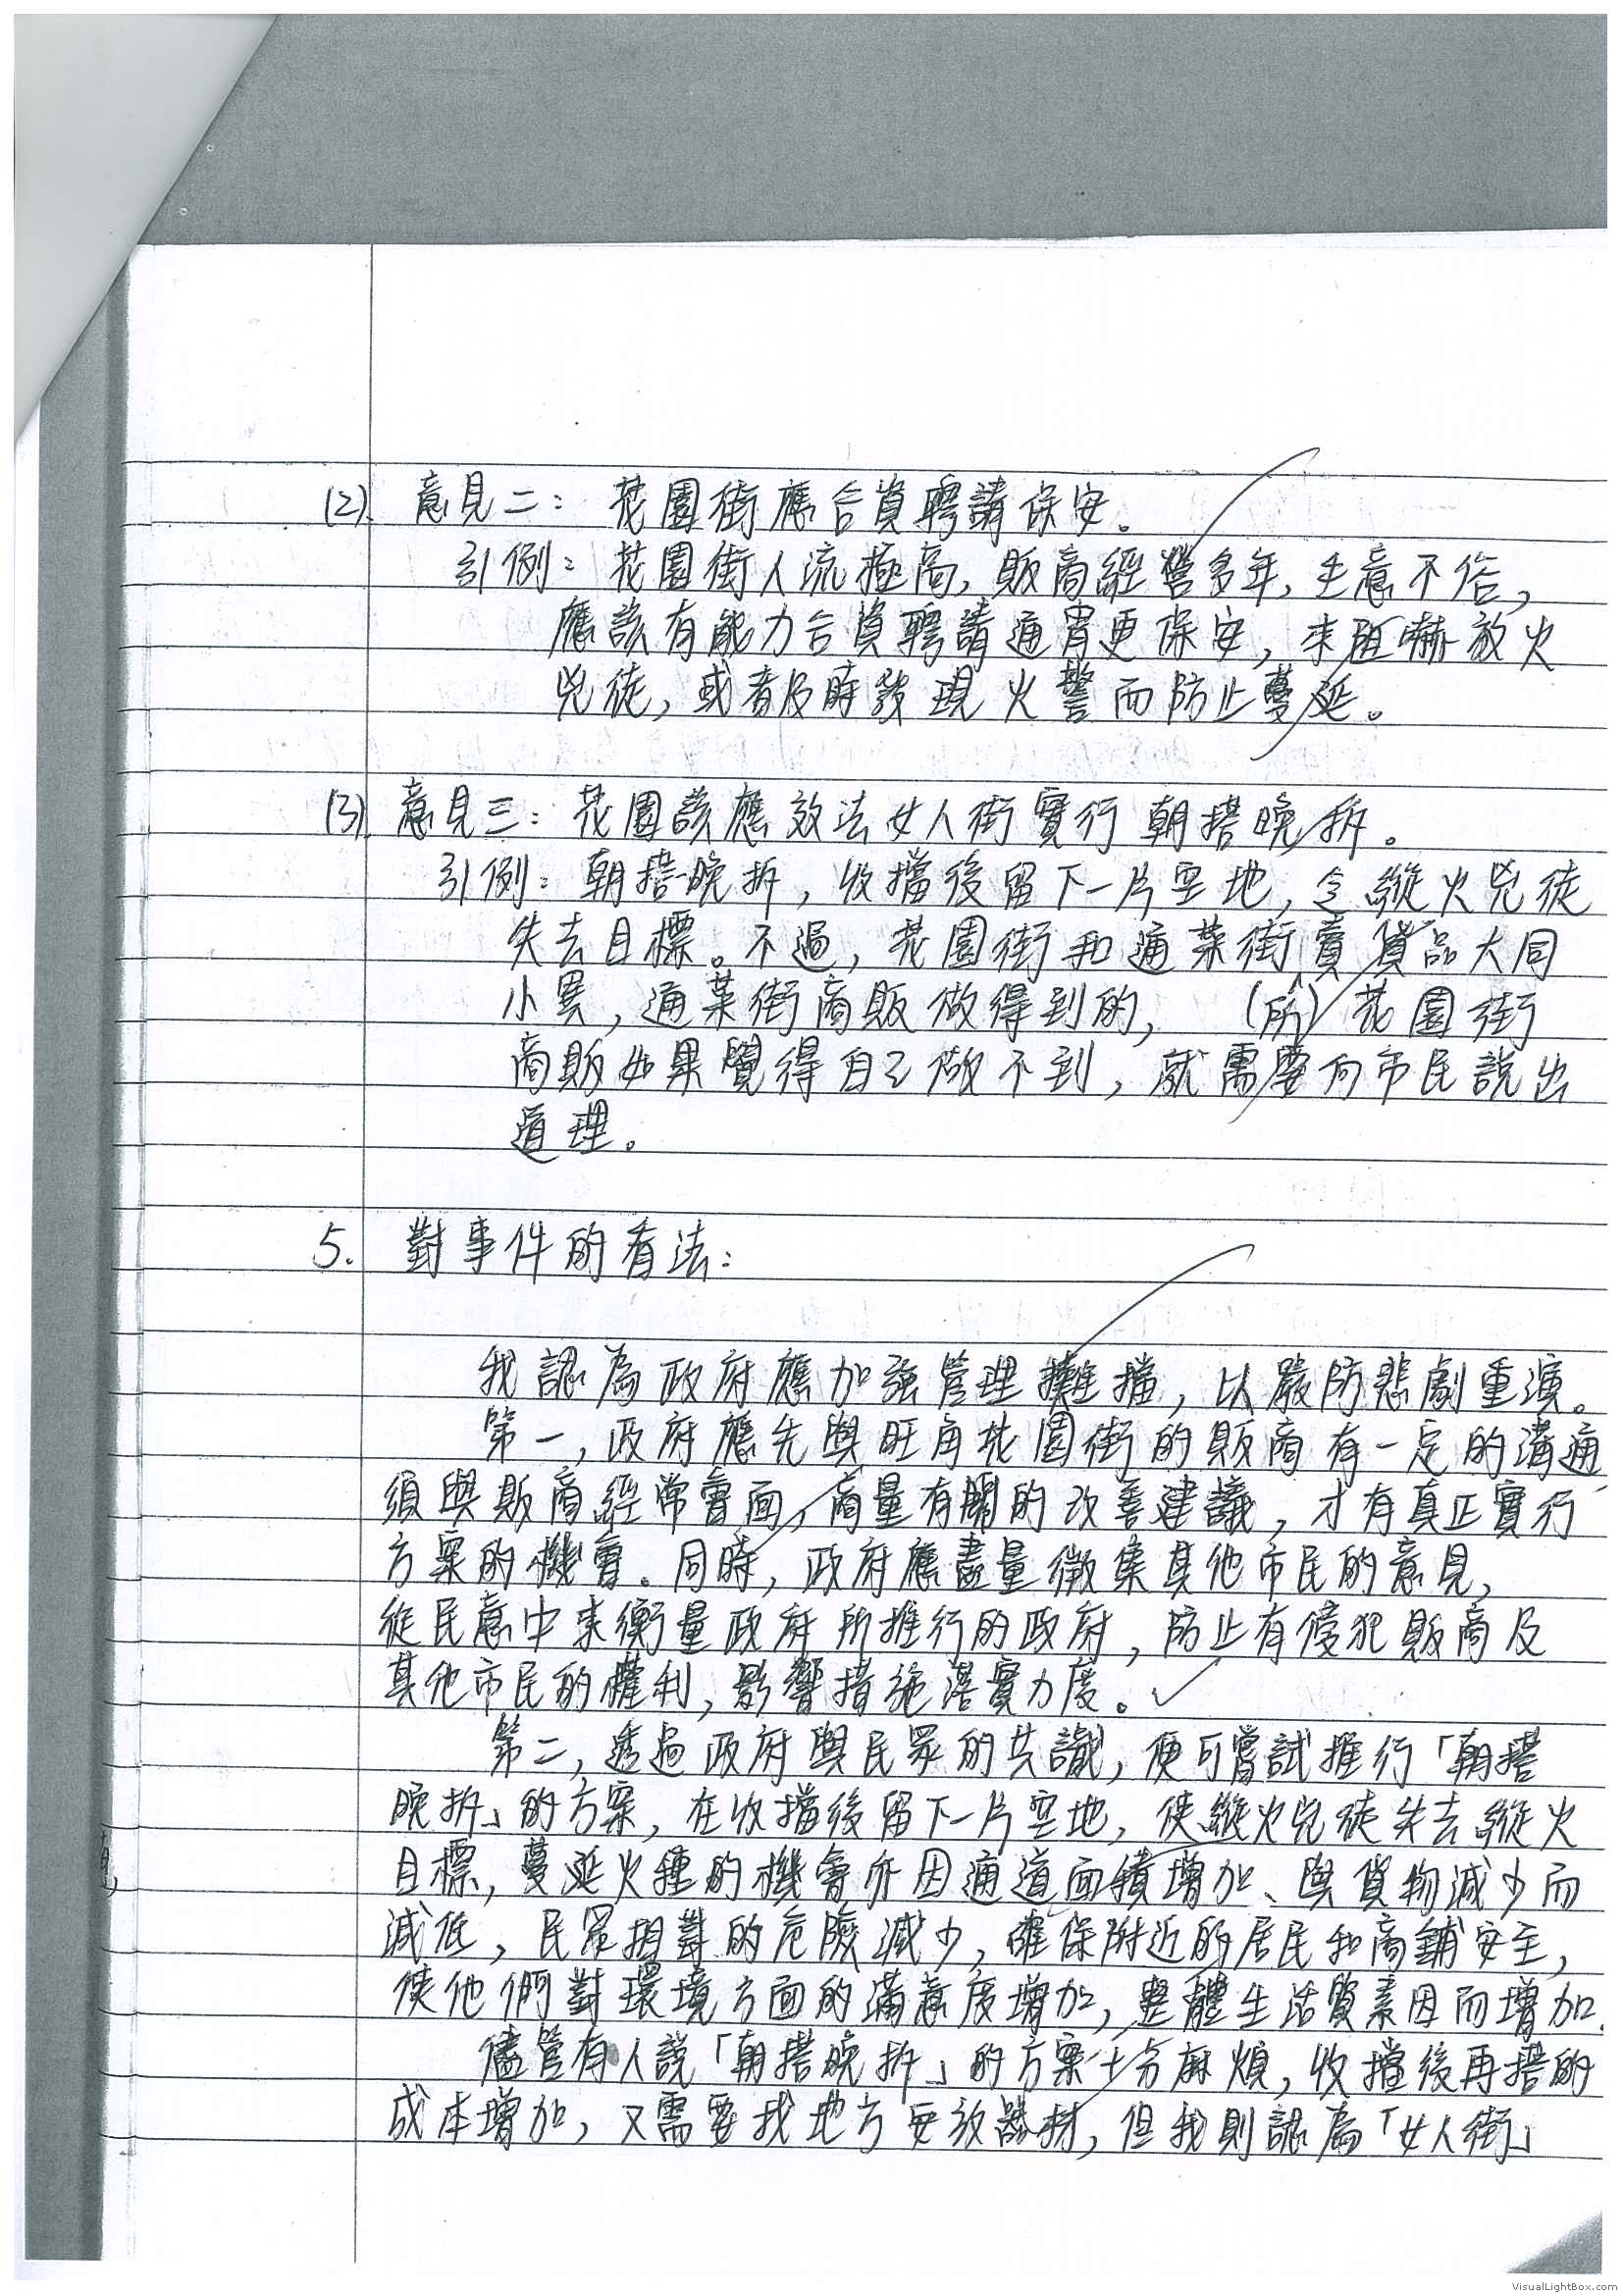 (2). 意見二：花園街應合資聘請保安。
引例：花園街人流極高，販商經營多年，生意不俗，
應該有能力合資聘請通宵更保安，來阻嚇放火
兇徒，或者及時發現火警而防止蔓延。
(3). 意見三：花園該應效法女人街實行朝搭晚拆。
引例：朝搭晚拆，收擋後留下一片空地，令縱火兇徒
失去目標。不過，花園街和通菜街賣貨品大同
小異，通菜街商販做得到的，(所)花園街
商販如果覺得自己做不到，就需要向市民說出
道理。
5. 對事件的看法：
我認為政府應加強管理攤擋，以嚴防悲劇重演。
第一，政府應先與旺角花園街的販商有一定的溝通，
須與販商經常會面，商量有關的改善建議，才有真正實行
方案的機會。同時，政府應盡量徵集其他市民的意見，
從民意中來衡量政府所推行的政府，防止有侵犯販商及
其他市民的權利，影響措施落實力度。
第二，透過政府與民眾的共識，便可嘗試推行「朝搭
晚拆」的方案，在收擋後留下一片空地，使縱火兇徒失去縱火
目標，蔓延火種的機會亦因通道面積增加、與貨物減少而
減低，民眾相對的危險減少，確保附近的居民和商鋪安全，
使他們對環境方面的滿意度增加，整體生活質素因而增加.
儘管有人說「朝搭晚拆」的方案十分麻煩，收擋後再搭的
成本增加，又需要找地方安放器材，但我則認為「女人街」
VisualLightBox.com